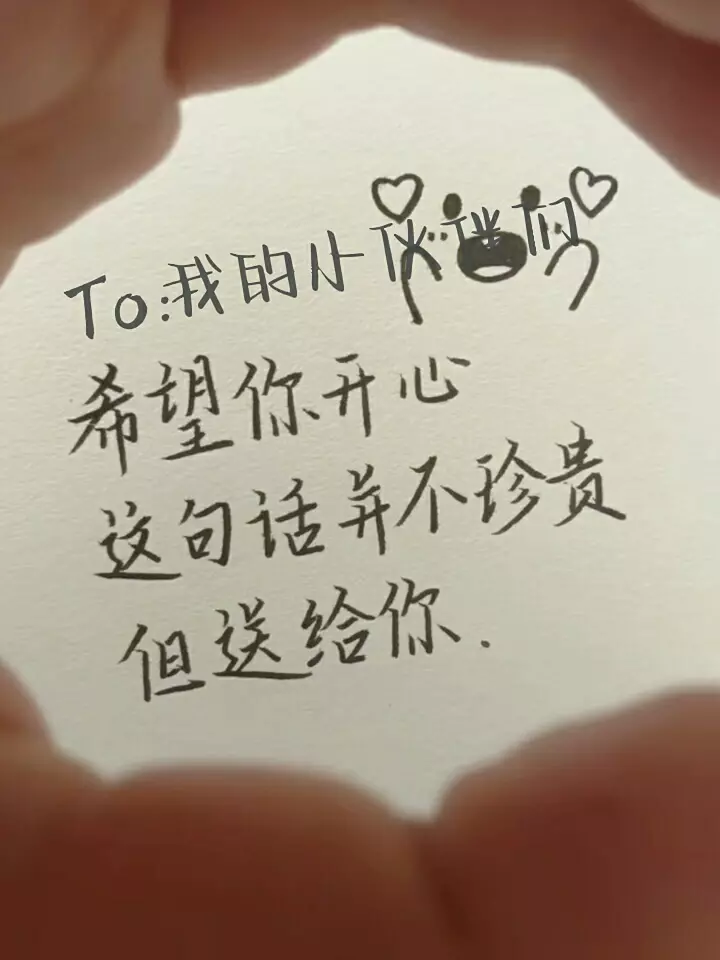 To:我的小伙伴们
希望你开心
这句话并不珍贵
但送给你.